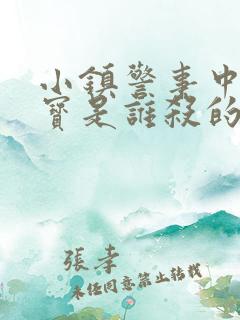 小鎮警事中
寶是誰殺的
張孝
未任同意禁止转载